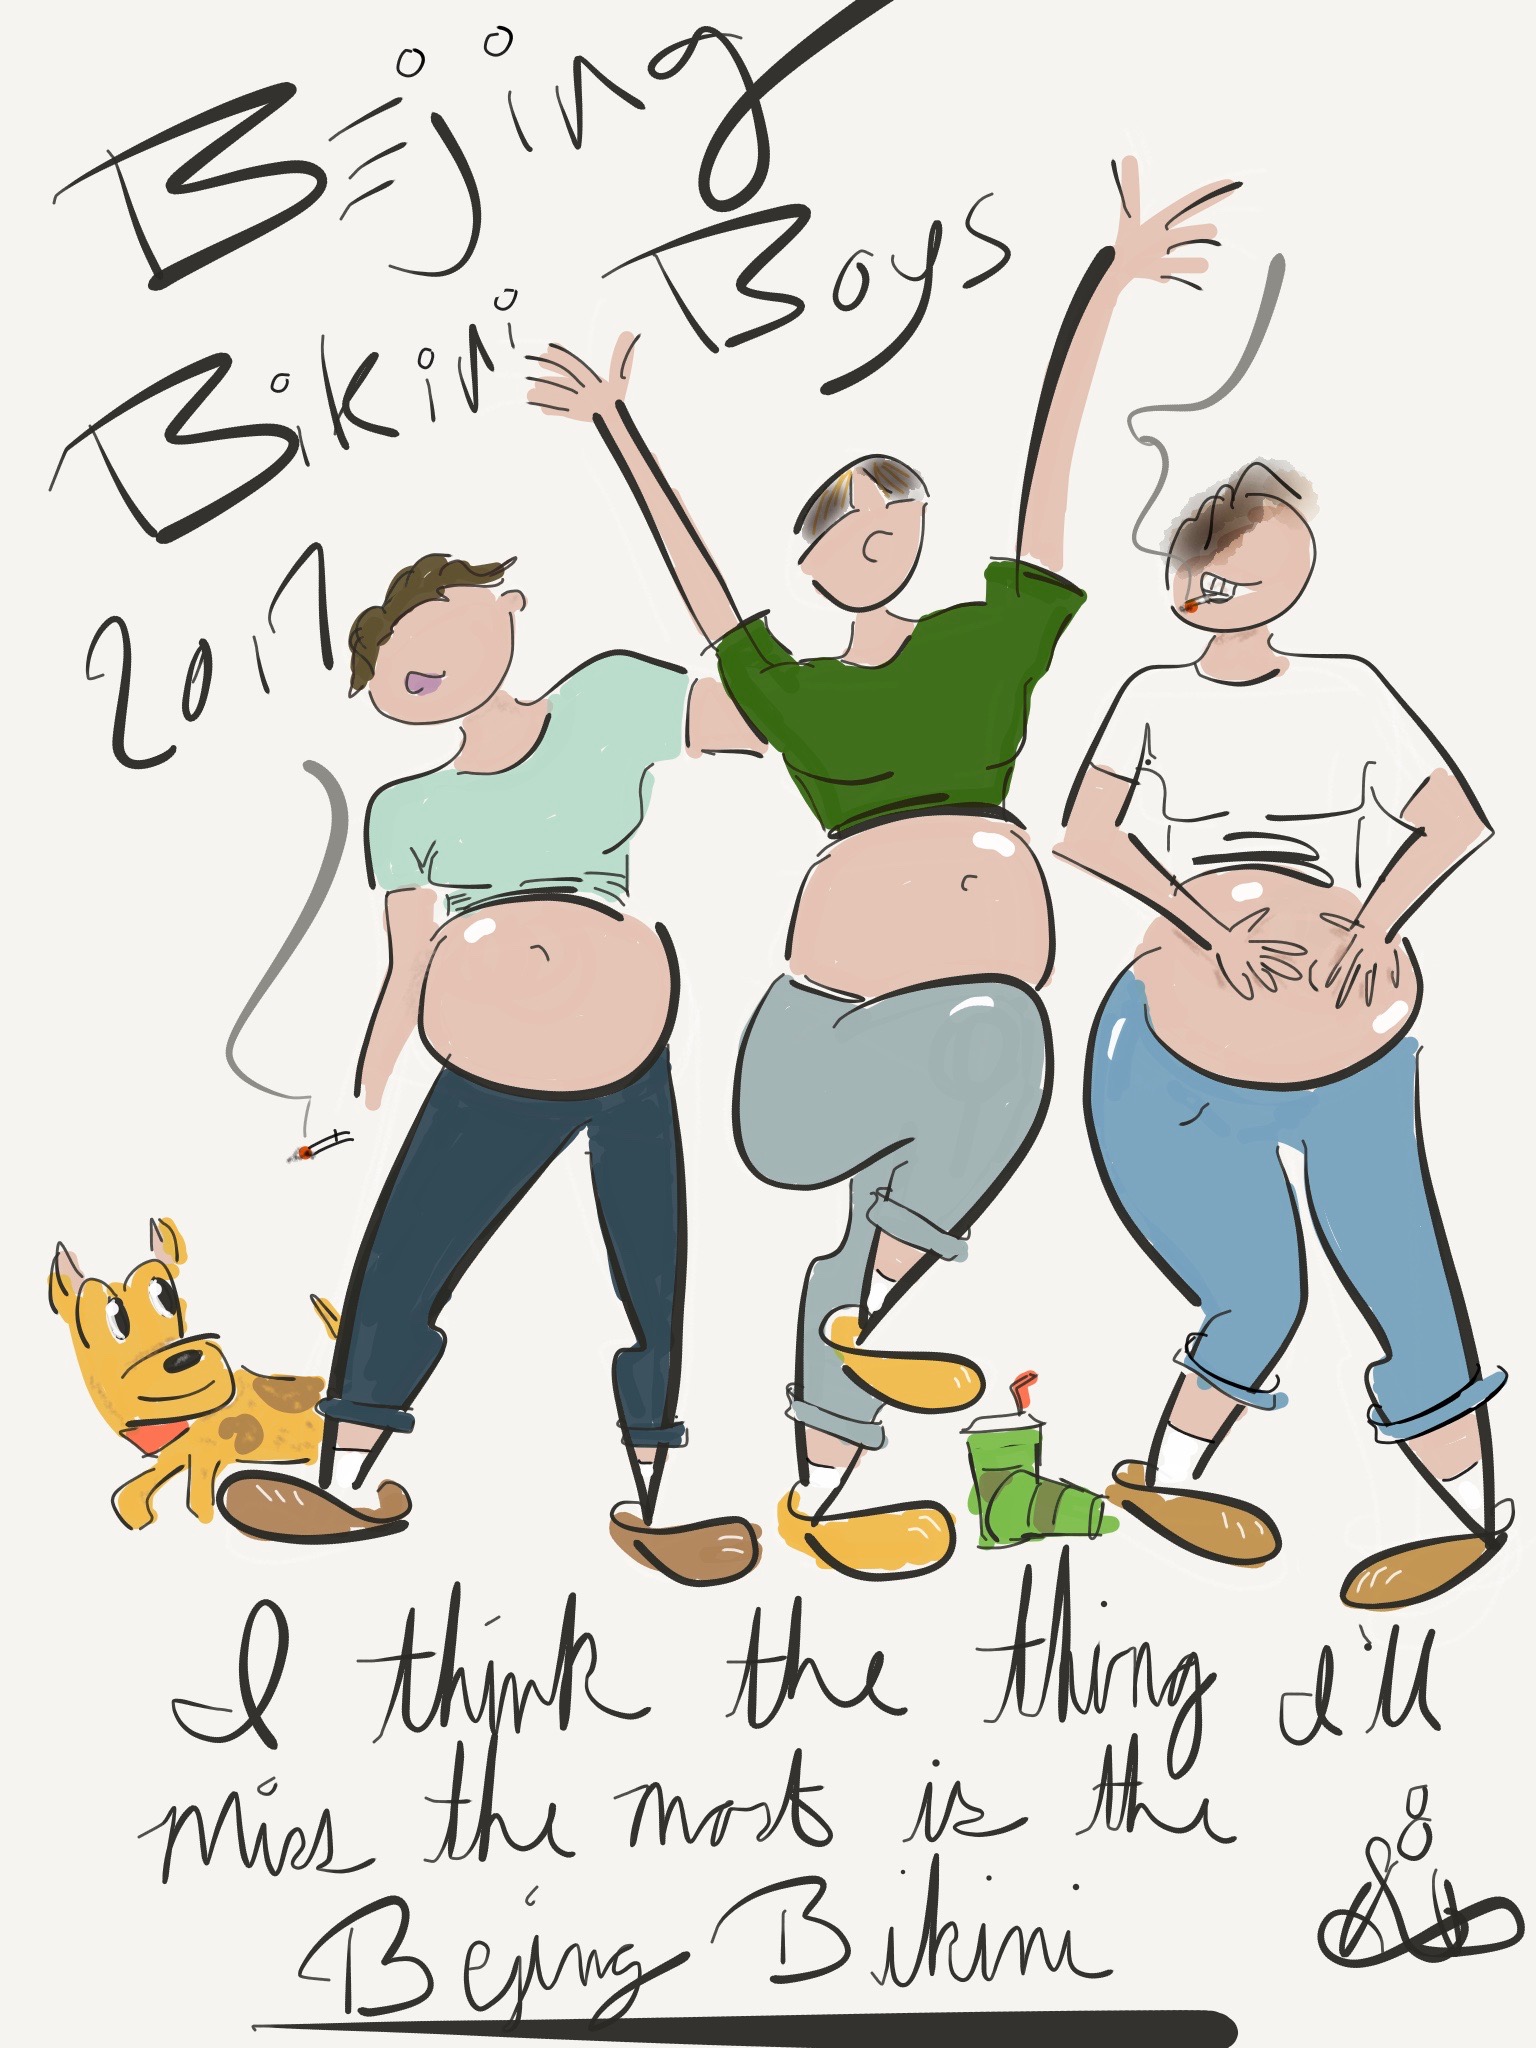 Bejing
Boys
Bikini
2017
I think the thing I'll
miss the most is the
Bejing Bikini